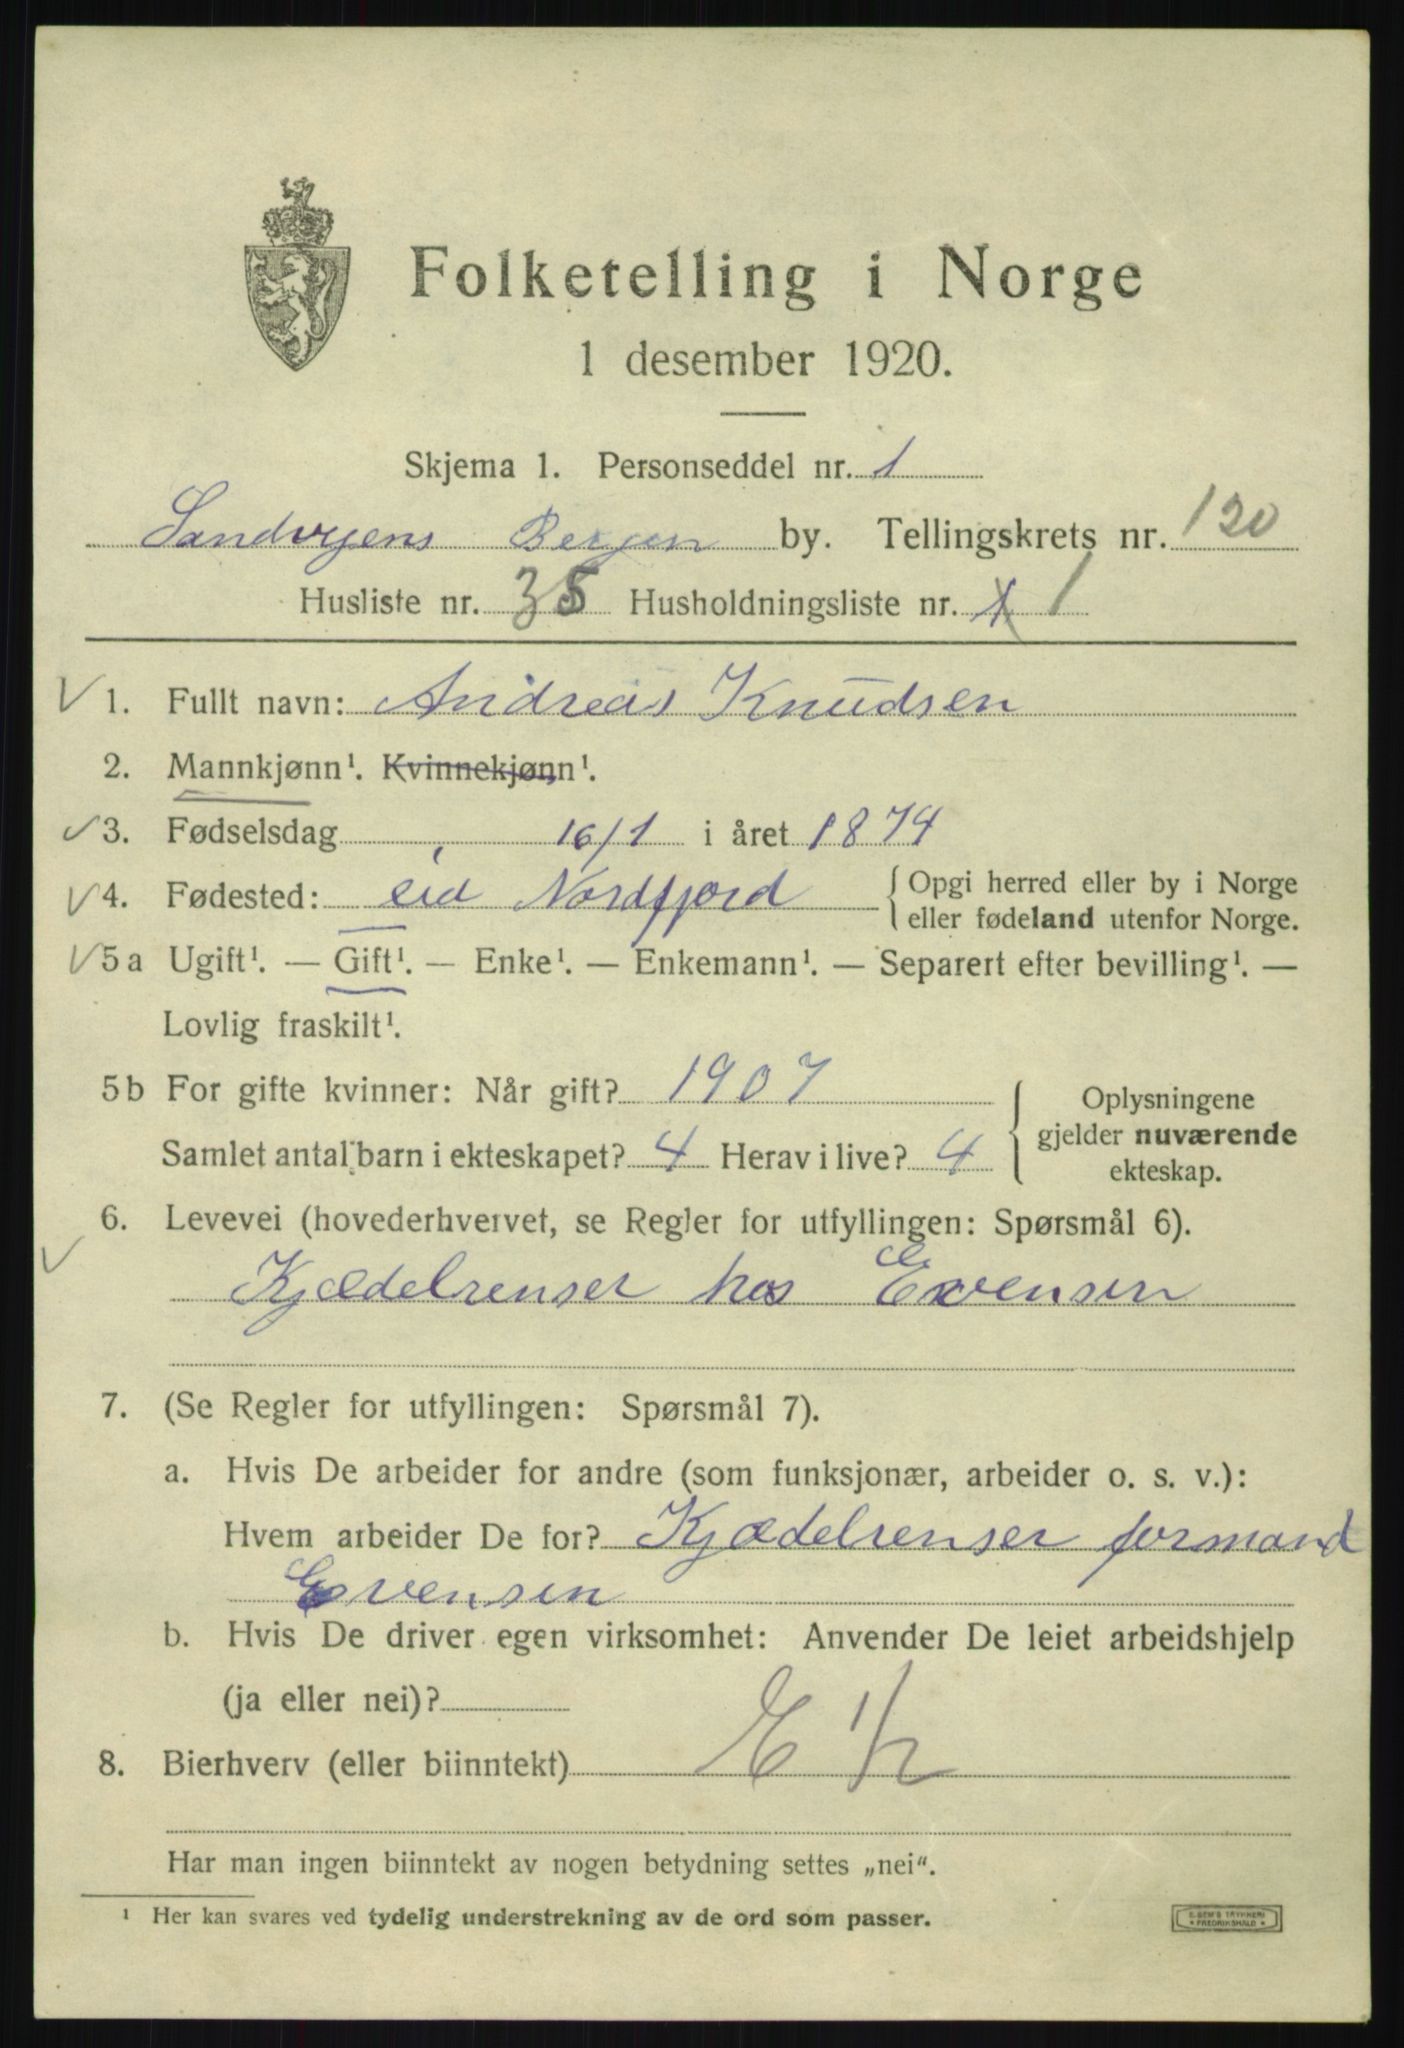 Folketelling i Norge
1 desember 1920.
Skjema 1. Personseddel nr. 1
Sandvyens Bergen by. Tellingskrets nr. 120
Husliste nr. 35 Husholdningsliste nr. 1 1
1. Fullt navn: Andreas Knudsen
2. Mannkjønn¹. Kvinnekjønn¹.
3. Fødselsdag 16/1 i året 1874
4. Fødested: eid Nordfjord {Opgi herred eller by i Norge
eller fødeland utenfor Norge.
5a Ugift¹. — Gift¹. — Enke¹. — Enkemann¹. — Separert efter bevilling¹. —
Lovlig fraskilt¹.
5b For gifte kvinner: Når gift? 1907
Samlet antal barn i ekteskapet? 4 Herav i live? 4
Oplysningene
gjelder nuværende
ekteskap.
6. Levevei (hovederhvervet, se Regler for utfyllingen: Spørsmål 6).
Kjædelrenser hos Evensen
7. (Se Regler for utfyllingen: Spørsmål 7).
a. Hvis De arbeider for andre (som funksjonær, arbeider o. s. v.):
Hvem arbeider De for? Kjædelrenser formand
Evensen
b. Hvis De driver egen virksomhet: Anvender De leiet arbeidshjelp
(ja eller nei)?
8. Bierhverv (eller biinntekt) E 1/2
Har man ingen biinntekt av nogen betydning settes „nei“.
¹ Her kan svares ved tydelig understrekning av de ord som passer.
E. SEM'S TRYKKERI
• FREDRIKSHALD •